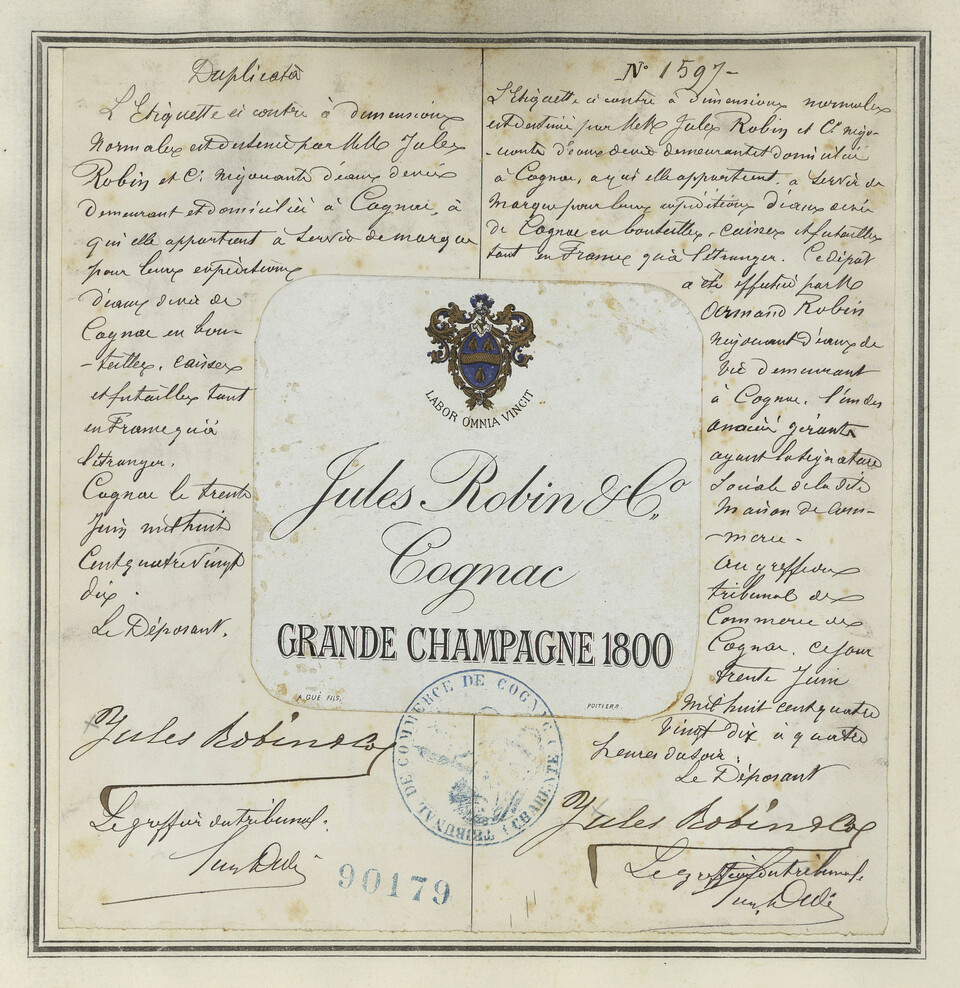 Duplicata
L'Etiquette ci contre à dimensions
normales est destinée par MM Jules
Robin et Cie négociants d'eaux de vie
demeurant et domiciliés à Cognac, à
qui elle appartient à servir de marque
pour leurs expéditions
d'eaux de vie de
Cognac en bou-
-teilles, caisses
et futailles tant
en France qu'à
l'étranger.
Cognac le trente
Juin mil huit
Cent quatre vingt
dix.
Le Déposant.
Jules Robin & Co
Le greffier du tribunal.
N° 1597-
L'Etiquette ci contre à dimensions normales
est destinée par MM Jules Robin et Cie négo-
-ciants d'eaux de vie demeurant et domiciliés
à Cognac, a qui elle appartient, a servir de
Marque pour leurs expéditions d'eaux de vie
de Cognac en bouteilles, caisses et futailles
tant en France qu'à l'étranger. Ce dépot
a été effectué par M
Armand Robin
négociant d'eaux de
vie demeurant
à Cognac, l'un des
associés gérants
ayant la signature
Sociale de la dite
Maison de Com-
-merce.
au greffe du
tribunal de
Commerce de
Cognac, ce jour
trente Juin
mil huit cent quatre
vingt dix à quatre
heures du soir.
Le Déposant
Jules Robin & Co
Le greffier du tribunal
LABOR OMNIA VINCIT
Jules Robin & Co.
Cognac
GRANDE CHAMPAGNE 1800
A. GUÉ FILS.
POITIERS
TRIBUNAL DE COMMERCE DE COGNAC (CHARENTE)
90179